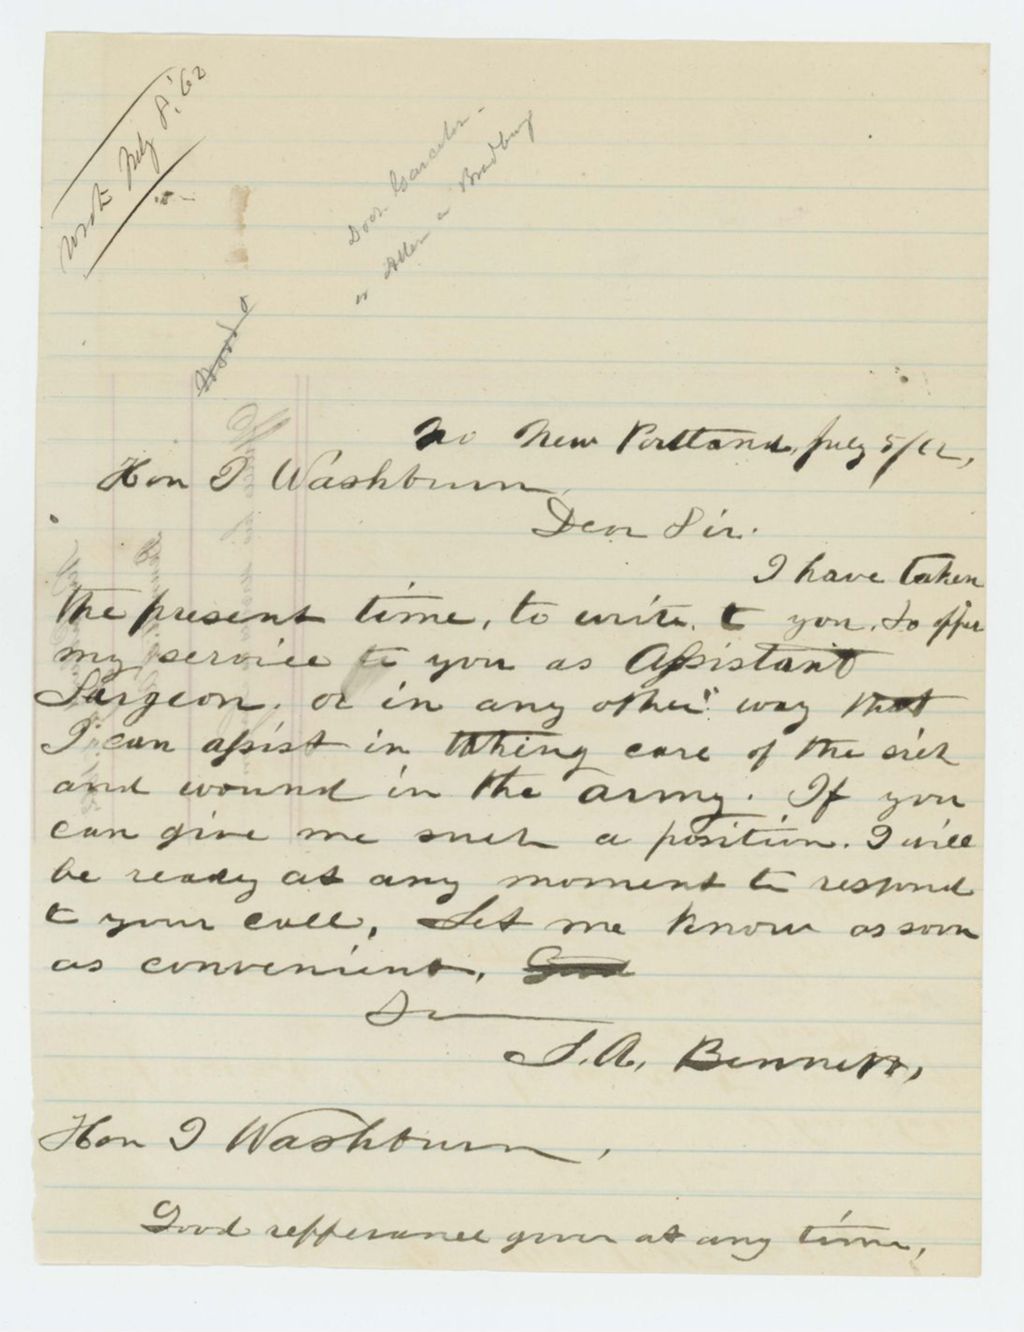 wrote July 8, '62
Door
or Allen a Bradbury
No New Portland, July 5/62,
Hon I Washburn,
Dear Sir.
I have taken
the present time, to write. to you. to offer
my service to you as Assistant
Surgeon. or in any other way that
I can assist in taking care of the sick
and wound in the army. If you
can give me such a position. I will
be ready at any moment to respond
to your call, Let me know as soon
as convenient, Good
J. A. Bennett,
Hon I Washburn,
Good refferance given at any time,